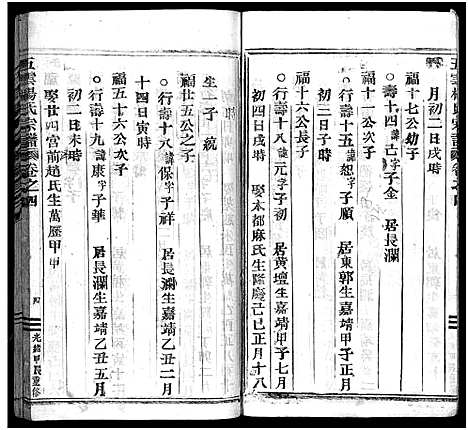 五雲楊氏宗譜 卷之四
月初二日戌時
福十七公幼子
壽十四 諱古 字子金 居長瀾
福十一公次子
行壽十五 諱恕 字子順 居東郭生嘉靖甲子正月
福十六公長子
行壽十八 諱元 字子初 居黃壇生嘉靖甲子七月
初四日辰時 娶木都麻氏生隆慶己巳正月十八
生一子 統
福廿五公之子
行壽十八 諱保 字子祥 居長瀾生嘉靖乙丑二月
十四日寅時
福五十六公次子
行壽十九 諱康 字子華 居長瀾生嘉靖乙丑五月
初三日未時
娶廿四宮前趙氏生萬歷甲申
五雲楊氏宗譜 卷之四
四
光緒甲辰重修